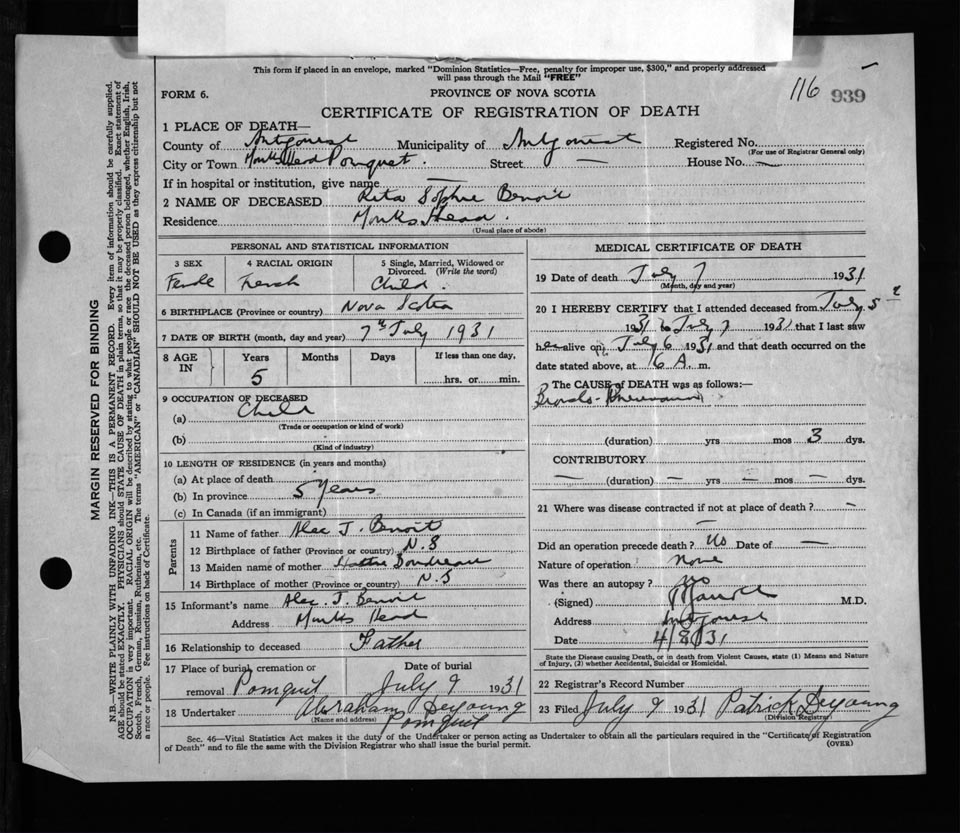 This form if placed in an envelope, marked "Dominion Statistics—Free, penalty for improper use, $300," and properly addressed
will pass through the Mail "FREE"
116 939
FORM 6. PROVINCE OF NOVA SCOTIA
CERTIFICATE OF REGISTRATION OF DEATH
1 PLACE OF DEATH—
County of Antigonish Municipality of Antigonish Registered No.
(For use of Registrar General only)
City or Town Monks Head Pomquet. Street — House No. —
If in hospital or institution, give name —
2 NAME OF DECEASED Rita Sophie Benoit
Residence Monks Head.
(Usual place of abode)
PERSONAL AND STATISTICAL INFORMATION
3 SEX 4 RACIAL ORIGIN 5 Single, Married, Widowed or
Divorced. (Write the word)
Female French Child.
6 BIRTHPLACE (Province or country) Nova Scotia
7 DATE OF BIRTH (month, day and year) 7th July 1931
8 AGE IN Years Months Days If less than one day,
5 hrs. or min.
9 OCCUPATION OF DECEASED
(a) Child
(Trade or occupation or kind of work)
(b)
(Kind of industry)
10 LENGTH OF RESIDENCE (in years and months)
(a) At place of death
(b) In province 5 years
(c) In Canada (if an immigrant)
Parents
11 Name of father Alec J. Benoit
12 Birthplace of father (Province or country) N.S
13 Maiden name of mother Hattie Boudreau
14 Birthplace of mother (Province or country) N.S
15 Informant's name Alec. J. Benoit
Address Monks Head
16 Relationship to deceased Father
17 Place of burial, cremation or Date of burial
removal Pomquit July 9 1931
18 Undertaker Abraham Deyoung
(Name and address) Pomquit
MEDICAL CERTIFICATE OF DEATH
19 Date of death July 7 1931
(Month, day and year)
20 I HEREBY CERTIFY that I attended deceased from July 5
1931 to July 7 1931 that I last saw
her alive on July 6 1931 and that death occurred on the
date stated above, at 6 A. m.
The CAUSE of DEATH was as follows:—
Broncho-Pneumonia
(duration) yrs mos 3 dys.
CONTRIBUTORY
— (duration) — yrs — mos — dys.
21 Where was disease contracted if not at place of death? —
—
Did an operation precede death? No Date of —
Nature of operation None
Was there an autopsy? no
(Signed) M.D.
Address Antigonish
Date 4/8/31
State the Disease causing Death, or in death from Violent Causes, state (1) Means and Nature
of Injury, (2) whether Accidental, Suicidal or Homicidal.
22 Registrar's Record Number
23 Filed July 9 1931 Patrick Deyoung
(Division Registrar)
Sec. 46—Vital Statistics Act makes it the duty of the Undertaker or person acting as Undertaker to obtain all the particulars required in the "Certificate of Registration
of Death" and to file the same with the Division Registrar who shall issue the burial permit. (OVER)
MARGIN RESERVED FOR BINDING
N.B.—WRITE PLAINLY WITH UNFADING INK—THIS IS A PERMANENT RECORD. Every item of information should be carefully supplied.
AGE should be stated EXACTLY. PHYSICIANS should STATE CAUSE OF DEATH in plain terms, so that it may be properly classified. Exact statement of
OCCUPATION is very important. RACIAL ORIGIN will be described by stating to what people or race the deceased person belonged, whether English, Irish,
Scotch, French, German, Russian, Ruthenian, etc. The terms "AMERICAN" or "CANADIAN" SHOULD NOT BE USED as they express citizenship but not
a race or people. Fee instructions on back of Certificate.